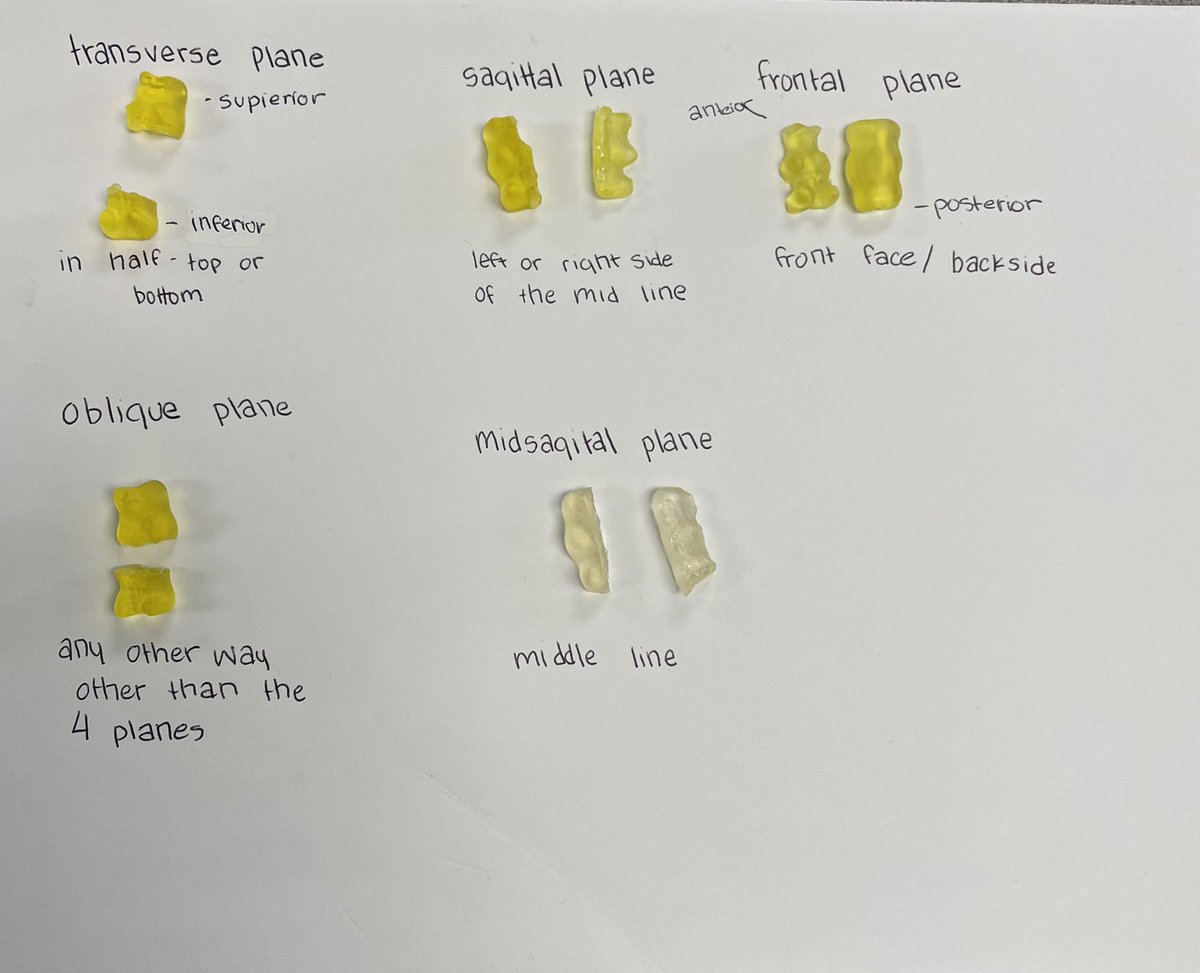 transverse plane
- supierior
- inferior
in half - top or
bottom
sagittal plane
left or right side
of the mid line
frontal plane
anteior
- posterior
front face / backside
oblique plane
any other way
other than the
4 planes
midsagital plane
middle line